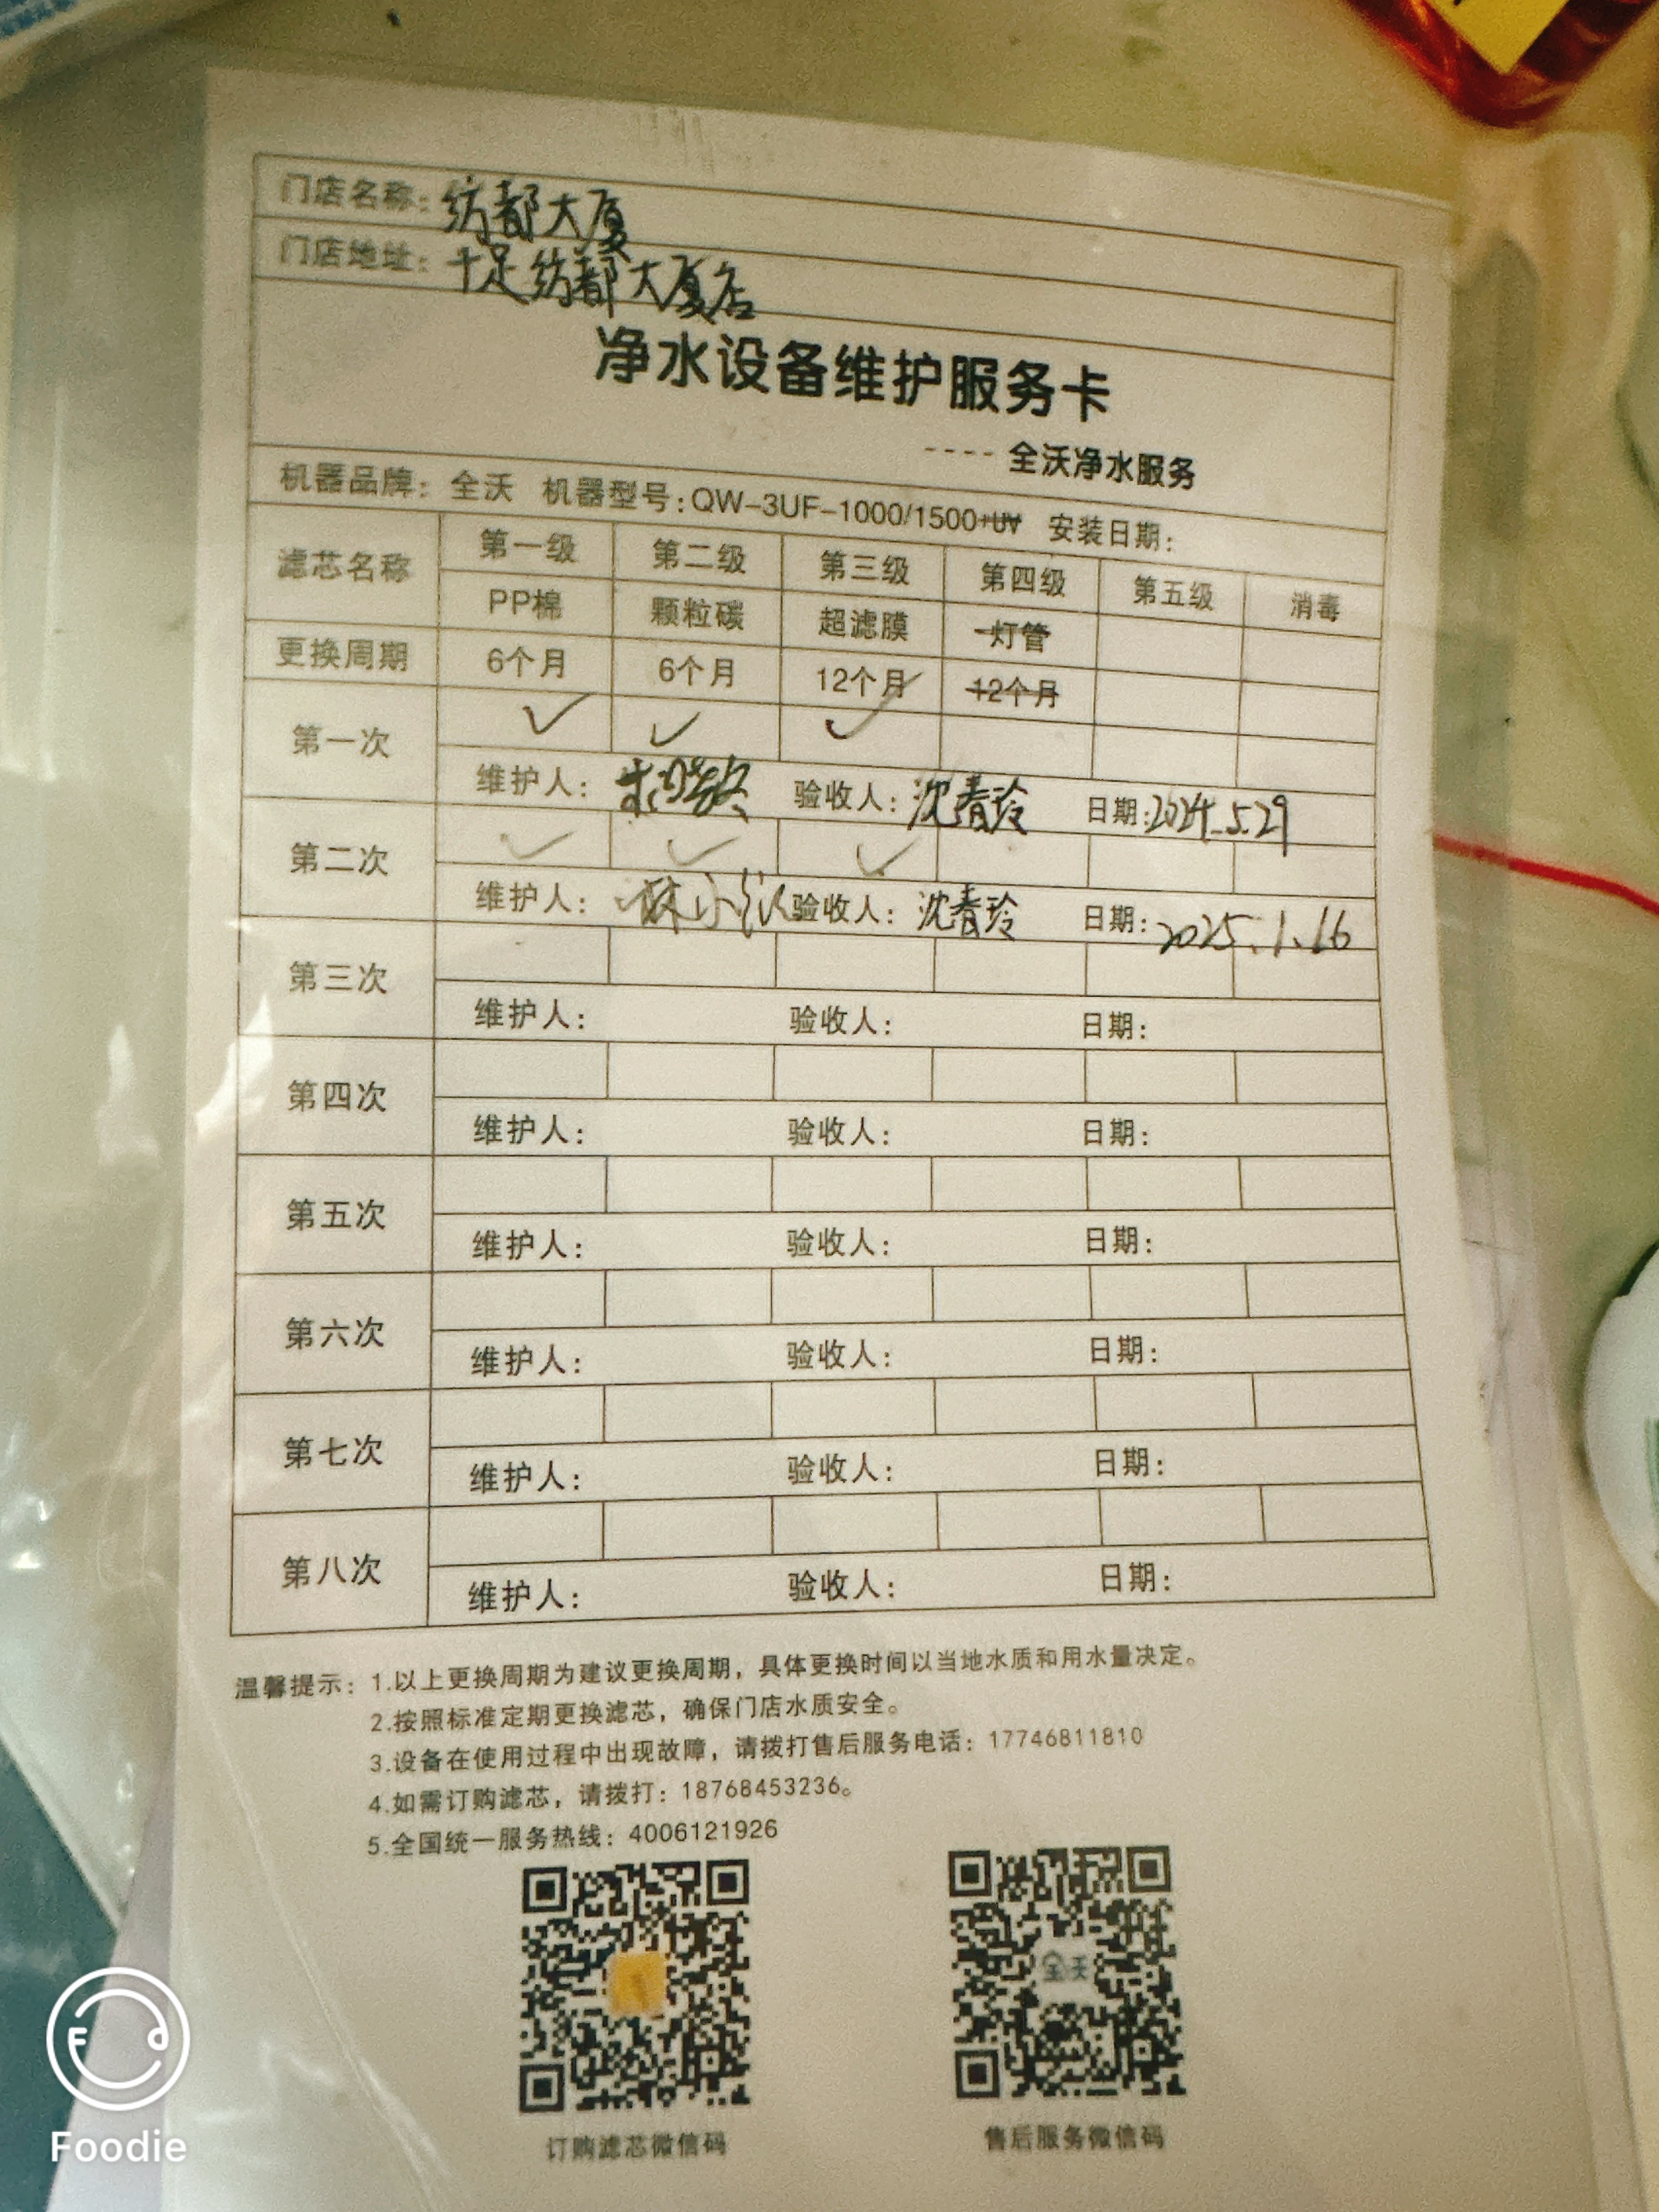 门店名称：纺都大厦
门店地址：十足纺都大厦店
净水设备维护服务卡
---- 全沃净水服务
机器品牌：全沃 机器型号：QW-3UF-1000/1500+UV 安装日期：
滤芯名称 第一级 第二级 第三级 第四级 第五级 消毒
PP棉 颗粒碳 超滤膜 灯管
更换周期 6个月 6个月 12个月 12个月
第一次 ✓ ✓ ✓
维护人： 验收人：沈春玲 日期：2024.5.29
第二次 ✓ ✓ ✓
维护人：林小 验收人：沈春玲 日期：2025.1.16
第三次
维护人： 验收人： 日期：
第四次
维护人： 验收人： 日期：
第五次
维护人： 验收人： 日期：
第六次
维护人： 验收人： 日期：
第七次
维护人： 验收人： 日期：
第八次
维护人： 验收人： 日期：
温馨提示：1.以上更换周期为建议更换周期，具体更换时间以当地水质和用水量决定。
2.按照标准定期更换滤芯，确保门店水质安全。
3.设备在使用过程中出现故障，请拨打售后服务电话：17746811810
4.如需订购滤芯，请拨打：18768453236。
5.全国统一服务热线：4006121926
全沃
订购滤芯微信码 售后服务微信码
Foodie